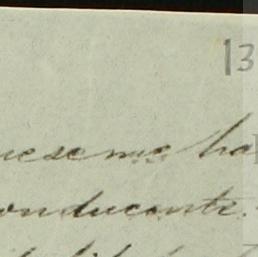 13
uese me ha
onducente.